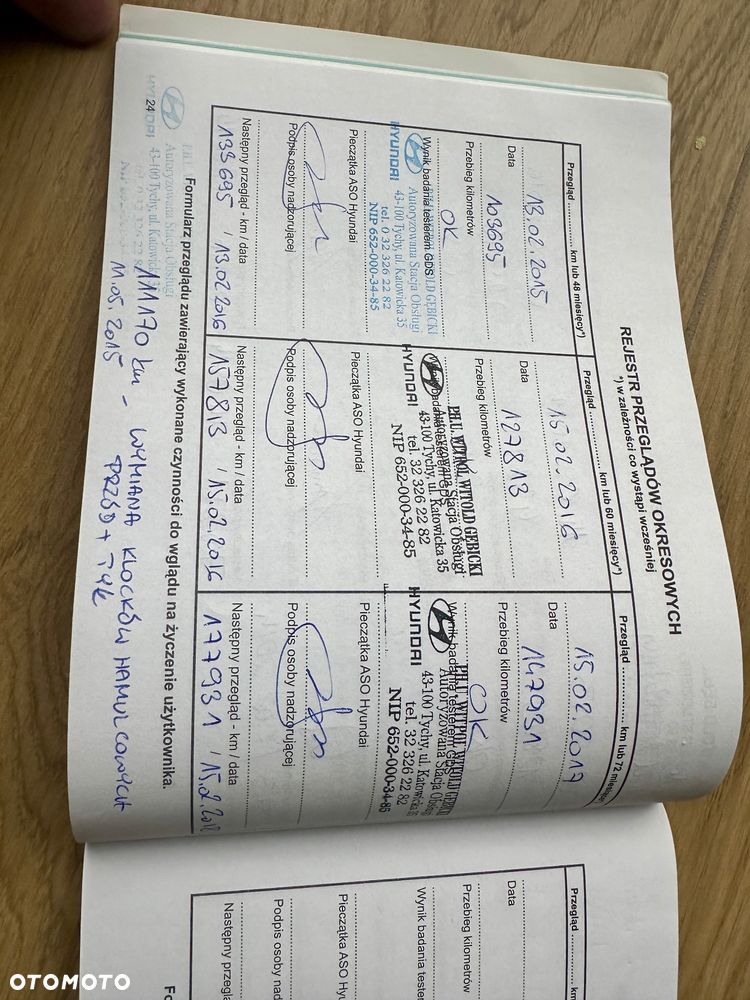 REJESTR PRZEGLĄDÓW OKRESOWYCH
*) w zależności co wystąpi wcześniej
Przegląd .............. km lub 48 miesięcy*)
13.02.2015
Data
103695
Przebieg kilometrów
OK
Wynik badania testerem GDS
HYUNDAI
Autoryzowana Stacja Obsługi
43-100 Tychy, ul. Katowicka 35
tel. 0 32 326 22 82
NIP 652-000-34-85
Pieczątka ASO Hyundai
Podpis osoby nadzorującej
Następny przegląd - km / data
133695 / 13.02.2016
Przegląd .............. km lub 60 miesięcy*)
15.02.2016
Data
127813
Przebieg kilometrów
P.H.U. WITPOL WITOLD GĘBICKI
Autoryzowana Stacja Obsługi
43-100 Tychy, ul. Katowicka 35
tel. 32 326 22 82
NIP 652-000-34-85
HYUNDAI
Pieczątka ASO Hyundai
Podpis osoby nadzorującej
Następny przegląd - km / data
157813 / 15.02.2016
Przegląd .............. km lub 72
15.02.2017
Data
147931
Przebieg kilometrów
OK
Wynik badania testerem GDS
P.H.U. WITPOL WITOLD GĘBICKI
Autoryzowana Stacja Obsługi
43-100 Tychy, ul. Katowicka 35
tel. 32 326 22 82
NIP 652-000-34-85
HYUNDAI
Pieczątka ASO Hyundai
Podpis osoby nadzorującej
Następny przegląd - km / data
177931 / 15.2.2018
Formularz przeglądu zawierający wykonane czynności do wglądu na życzenie użytkownika.
24
HYUNDAI
Autoryzowana Stacja Obsługi
43-100 Tychy, ul. Katowicka
111170 km - WYMIANA KLOCKÓW HAMULCOWYCH
11.05.2015 PRZÓD + TYŁ
Przegląd
Data
Przebieg kilometrów
Wynik badania
Pieczątka ASO Hyundai
Podpis osoby
Następny
OTOMOTO